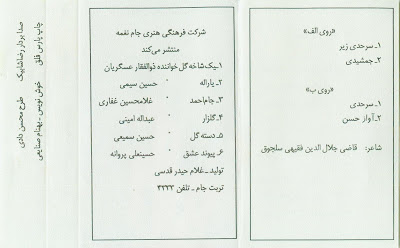 «روی الف»
۱ـ سرحدی زیر
۲ـ جمشیدی
«روی ب»
۱ـ سرحدی
۲ـ آواز حسن
شاعر: قاضی جلال الدین فقیهی سلجوق
شرکت فرهنگی هنری جام نغمه
منتشر می‌کند
۱ـ یک شاخه گل خواننده ذوالفقار عسگریان
۲ـ یاراله " حسین سیمی
۳ـ جام احمد " غلامحسین غفاری
۴ـ گلزار " عبداله امینی
۵ـ دسته گل " حسین سمیعی
۶ـ پیوند عشق " حسینعلی پروانه
تولید ـ غلام حیدر قدسی
تربت جام ـ تلفن ۴۲۲۳
صدا بردار رضا شابیک طرح محسن دادی
چاپ پارس قلق خوش نویس ـ بهنام صنایعی